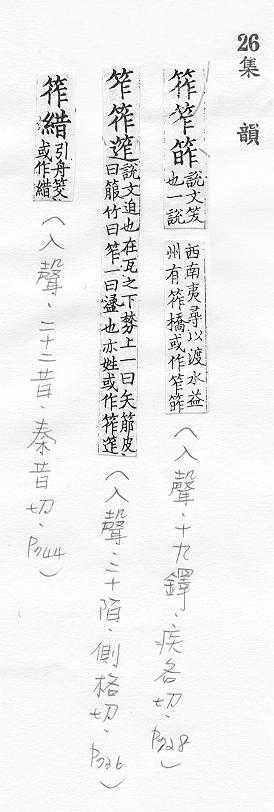 26集　韻
筰笮筯說文筊也一說西南夷尋以渡水益州有筰橋或作笮筯（入聲．十九鐸．疾各切．P728）
笮筰遳說文迫也在瓦之下棼上一曰矢箙皮曰箙竹曰笮一曰盪也亦姓或作筰遳（入聲．二十陌．側格切．P736）
筰䌖引舟筊或作䌖（入聲．二十二昔．秦昔切．P744）